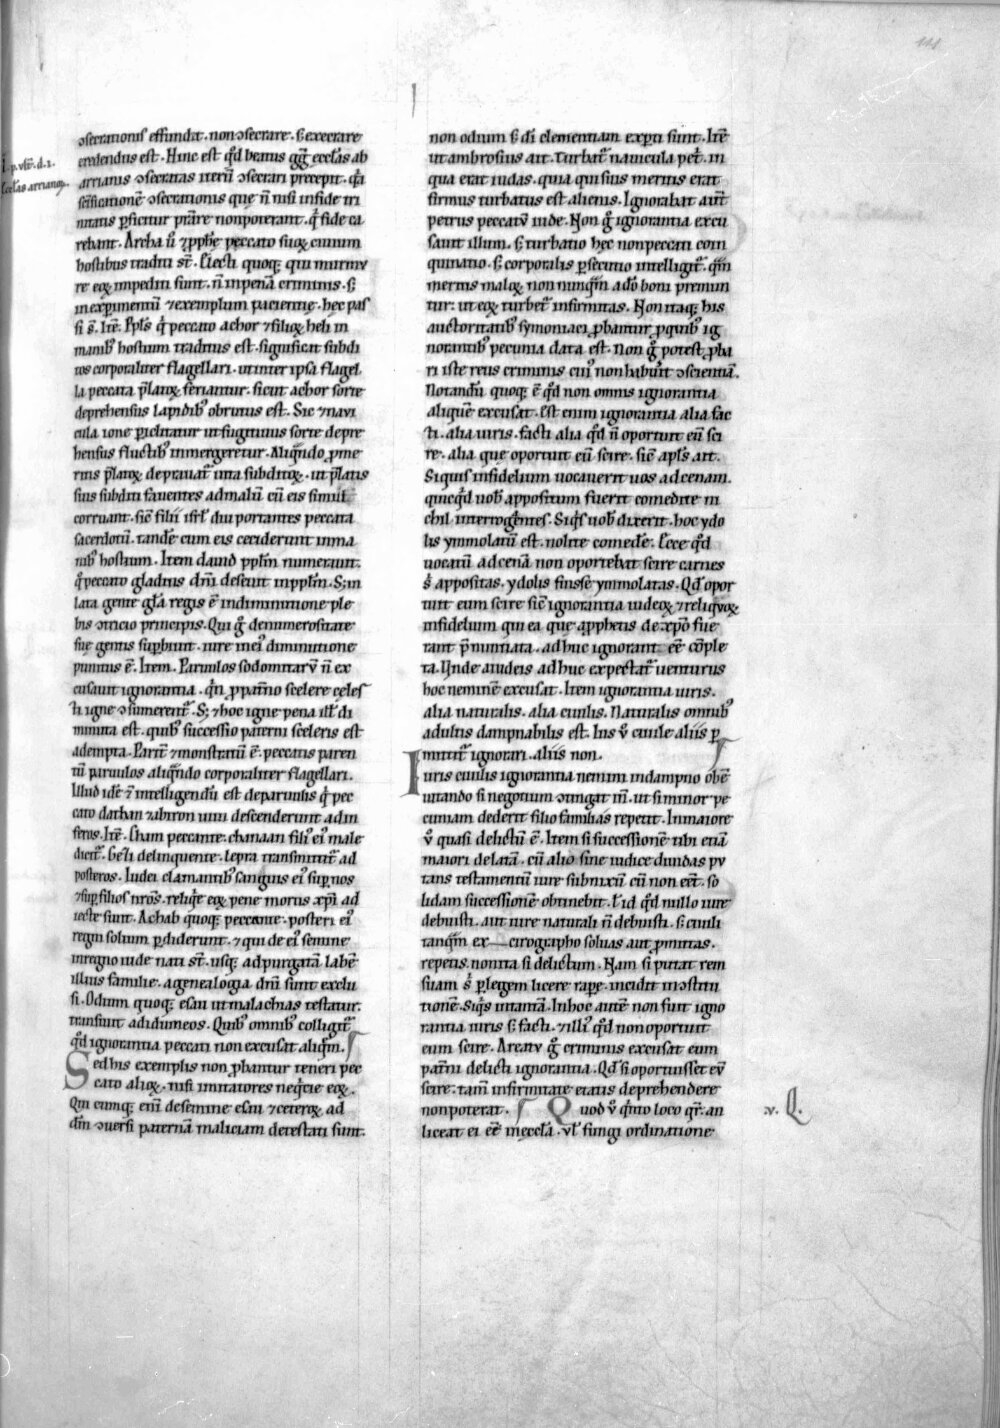 111
ɔsecrationis effundit. non ɔsecrare. s; execrare
credendus est. Hinc est qđ beatus gg̅ eccl̅as ab
arrianis ɔsecratas iterũ ɔsecrari precepit. q̇a
sc̅ificationẽ ɔsecrationis que ñ nisi in fide tri
nitatis ꝑficitur p̃stare non poterant. q̇ fide ca
rebant. Archa u̅ ⁊ ꝓph̅e peccato suoꝝ ciuium
hostibus traditi st̅. Electi quoq; qui murmu
re eoꝝ impediti sunt. ñ in penã criminis. s;
in exꝑimentũ ⁊ exemplum pacientie. hec pas
si s̅. Itẽ. Ppl̅s q̇ peccato achor ⁊ filioꝝ heli in
manibꝰ hostium traditus est. significat subdi
tos corporaliter flagellari. ut inter ipsa flagel
la peccata p̅latoꝝ feriantur. sicut achor sorte
deprehensus lapidibꝰ obrutus est. Sic ⁊ naui
cula ione ꝑiclitatur ut fugitiuus sorte depre
hensus fluctibꝰ inmergeretur. Aliqn̅do ꝓ me
ritis p̅latoꝝ deprauat᷑ uita subditoꝝ. ut p̅latis
suis subditi fauentes ad malũ cũ eis simul
corruant. sic̅ filii isrl̅ diu portantes peccata
sacerdotũ. tandẽ cum eis ceciderunt in ma
nibꝰ hostium. Item dauid ppl̅m numerauit.
q̇ peccato gladius dñi deseuit in ppl̅m. S; in
lata gente gl̅a regis ẽ in diminutione ple
bis ɔtricio principis. Qui g̊ de numerositate
sue gentis suꝑbiuit. iure in eiꝰ diminutione
punitus ẽ. Item. Paruulos sodomitarũ ñ ex
cusauit ignorantia. q̇n ꝓ pat̃no scelere celes
ti igne ɔsumerent᷑. S; ⁊ hoc igne pena ill̅ di
minuta est. quibꝰ successio paterni sceleris est
adempta. Parit̃ ⁊ monstratũ ẽ. peccatis paren
tũ paruulos aliqn̅do corporaliter flagellari.
Illud idẽ ⁊ intelligendũ est de paruulis q̇ pec
cato dathan ⁊ abiron uiui descenderunt ad in
feros. Itẽ. Cham peccante. chanaan filiꝰ eiꝰ male
dicit᷑. Geẓi delinquente. lepra transmittit᷑ ad
posteros. Iudei clamantibꝰ sanguis eiꝰ suꝑ nos
⁊ suꝑ filios nr̅os. reliq̇e eoꝝ pene mortis xp̅i ad
iecte sunt. Achab quoq; peccante. posteri eiꝰ
regni solium ꝑdiderunt. ⁊ qui de eiꝰ semine
in regno iude nati st̅. usq; ad purgatã labẽ
illius familie. a genealogia dñi sunt exclu
si. Odium quoq; esau ut malachias testatur.
transiuit ad idumeos. Quibꝰ omnibꝰ colligit᷑
qđ ignorantia peccati non excusat aliqm̅.
Sed his exemplis non ꝓbantur teneri pec
cato alioꝝ. nisi imitatores neq̇cie eoꝝ.
Qui cumq; eni̅ de semine esau ⁊ ceteroꝝ ad
dm̅ ɔuersi paternã maliciam detestati sunt.
eccl̅as arrianoꝝ.
non odium s; di̅ clementiam exꝑti sunt. Itẽ
ut ambrosius ait. Turbat᷑ nauicula pet̃. in
qua erat iudas. quia qui suis meritis erat
firmus turbatus est alienis. Ignorabat aut̃
petrus peccatũ iude. Non g̊ ignorantia excu
sauit illum. s; turbatio hec non peccati com
quinatio. s; corporalis ꝑsecutio intelligit᷑. qm̅
meritis maloꝝ non nunqm̅ adõ boni premun
tur. ut eoꝝ turbet᷑ infirmitas. Non itaq; his
auctoritatibꝰ symoniaci ꝓbantur ꝓ quibꝰ ig
norantibꝰ pecunia data est. Non g̊ potest ꝓba
ri iste reus criminis cuiꝰ non habuit ɔscientiã.
Notandũ quoq; ẽ qđ non omnis ignorantia
aliquẽ excusat. Est enim ignorantia alia fac
ti. alia iuris. facti alia qđ ñ oportuit eũ sci
re. alia que oportuit eũ scire. sic̅ apl̅s ait.
Siquis infidelium uocauerit uos ad cenam.
quicqđ uobꝰ appositum fuerit comedite ni
chil interrog̃ntes. Siq̇s uobꝰ dixerit. hoc ydo
lis ymmolatũ est. nolite comedẽ. Ecce qđ
uocatũ ad cenã non oportebat scire carnes
s; appositas. ydolis fuisse ymmolatas. Qđ opor
tuit eum scire sic̅ ignorantia iudeoꝝ ⁊ reliquoꝝ
infidelium qui ea que a ꝓphetis de xp̅o fue
rant p̅nuntiata. adhuc ignorant. eẽ cõple
ta. Unde aiudeis adhuc expectat᷑ uenturus
hoc neminẽ excusat. Item ignorantia iuris.
alia naturalis. alia ciuilis. Naturalis omnibꝰ
adultis dampnabilis est. Ius u̅ ciuile aliis ꝑ
mittit᷑ ignorari. aliis non.
Iuris ciuilis ignorantia nemini in dampno obẽ
uitando si negotium ɔtingat ĩ. ut si minor pe
cuniam dederit filio familias repetit. In maiore
u̅ quasi delictũ ẽ. Item si successionẽ tibi etiã
maiori delatã. cũ alio sine iudice diuidas pu
tans testamentũ iure subnixũ cũ non eẽt. so
lidam successionẽ obtinebit. Id qđ nullo iure
debuisti. aut iure naturali ñ debuisti. s; ciuili
tanqm̅ ex— cirographo soluas aut ꝓmittas.
repetis. non ita si delictum. Nam si putat rem
suam s; ꝑ legem licere raꝑe. incidit in ɔstitu
tionẽ. Siq̇s in tantã. In hoc autẽ non fuit igno
rantia iuris s; facti. ⁊ illiꝰ qđ non oportuit
eum scire. A reatu g̊ criminis excusat eum
pat̃ni delicti ignorantia. Qđ si oportuisset eũ
scire. tam̃ infirmitate etatis deprehendere
non poterat. Quod u̅ q̇nto loco qr̅. an
liceat ei eẽ in eccl̅a. ul̅ fungi ordinatione
.v. Q.